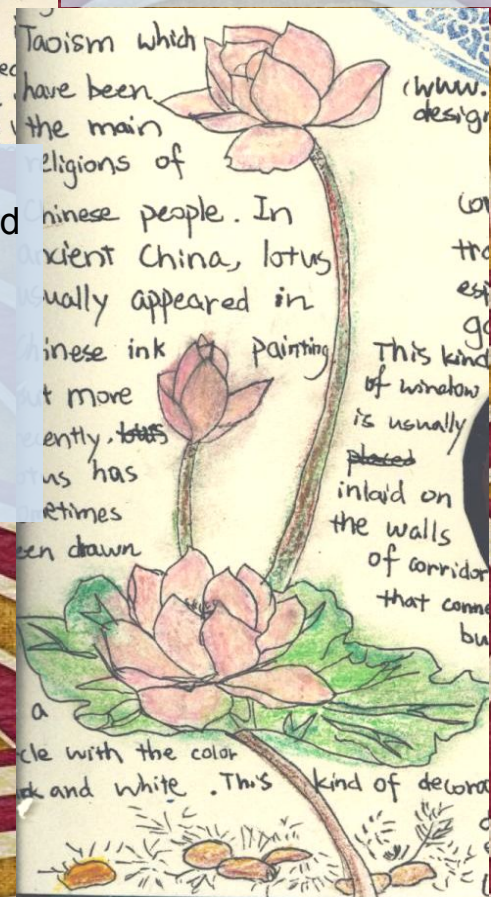 Taoism which
have been
the main
religions of
Chinese people. In
ancient China, lotus
usually appeared in
Chinese ink painting
but more
recently, lotus
lotus has
sometimes
been drawn
a
circle with the color
and white. This kind of
(www.
design
This kind
of window
is usually
placed
inlaid on
the walls
of corridor
that